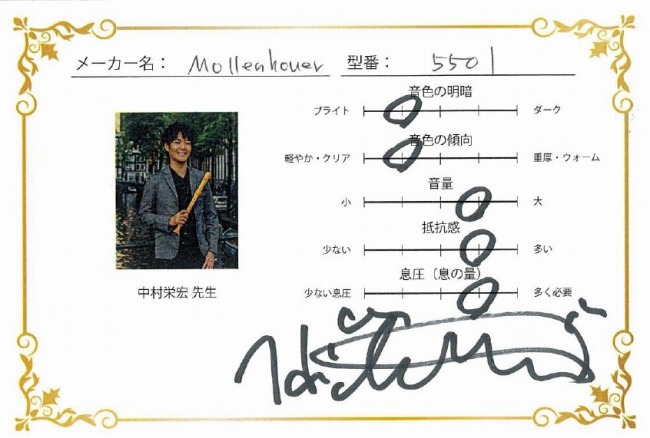 メーカー名： Mollenhouer 型番： 5501
音色の明暗
ブライト ダーク
音色の傾向
軽やか・クリア 重厚・ウォーム
音量
小 大
抵抗感
少ない 多い
息圧（息の量）
少ない息圧 多く必要
中村栄宏 先生